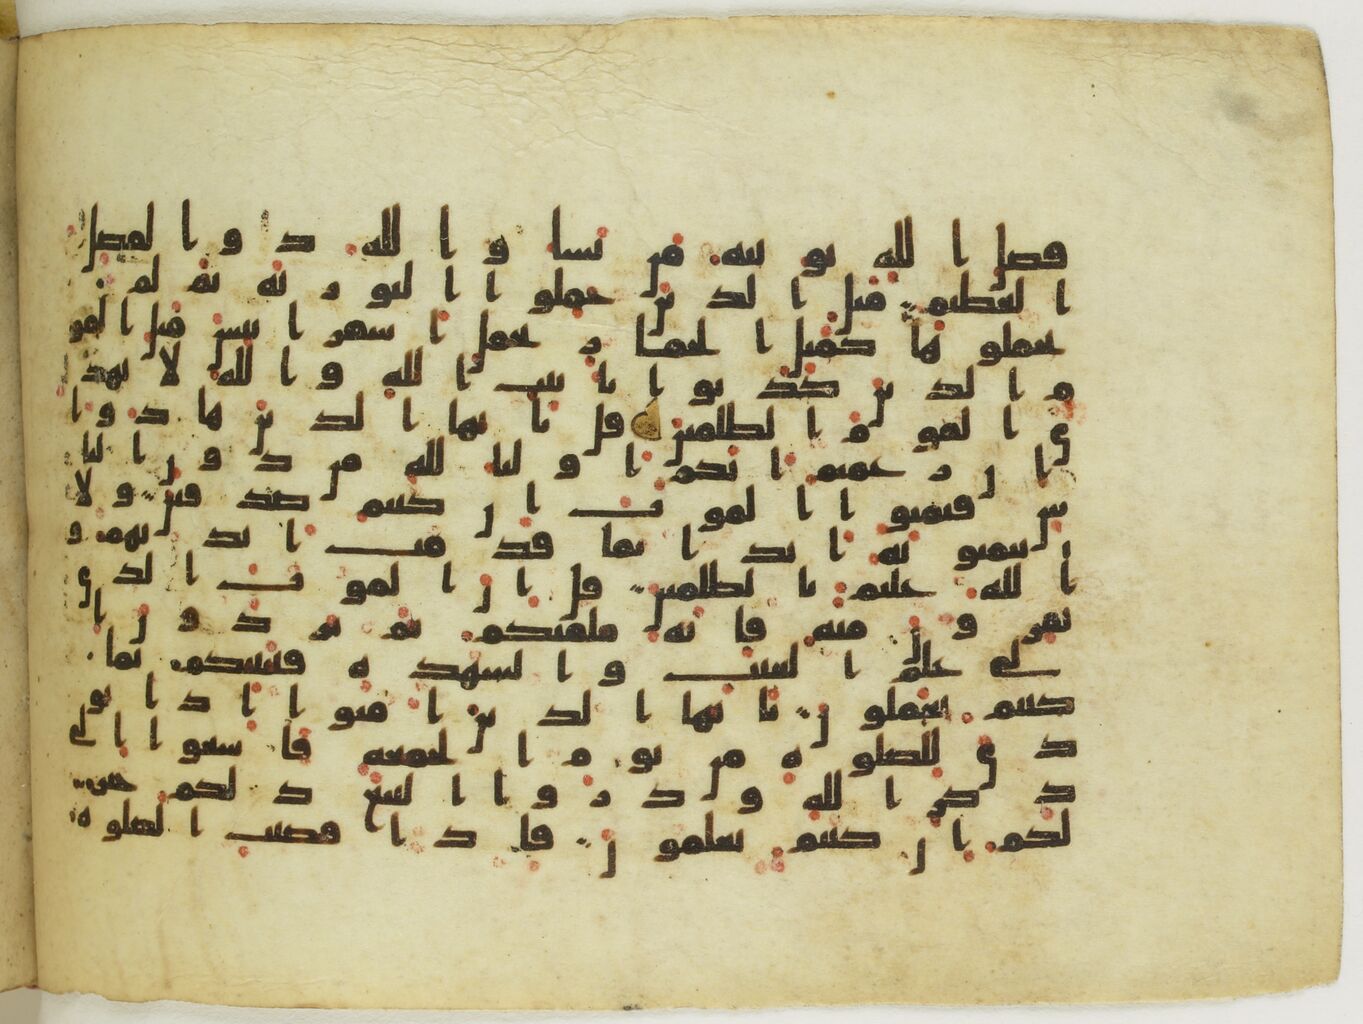 فضل الله يوتيه من يشا والله ذو الفضل
العظيم مثل الذين حملوا التوريه ثم لم
يحملوها كمثل الحمار يحمل اسفرا بيس مثل القو
م الذين كذبوا بايت الله والله لا يهد
ي القوم الظلمين قل يايها الذين هادوا
ان زعمتم انكم اوليا لله من دون النا
س فتمنوا الموت ان كنتم صدقين ولا
يتمنونه ابدا بما قدمت ايديهم و
الله عليم بالظلمين قل ان الموت الذي
تفرون منه فانه ملقيكم ثم تردون ا
لى علم الغيب والشهده فينبيكم بما
كنتم تعملون يايها الذين امنوا اذا نو
دي للصلوه من يوم الجمعه فاسعوا الى
ذكر الله وذروا البيع ذلكم خير
لكم ان كنتم تعلمون فاذا قضيت الصلوه